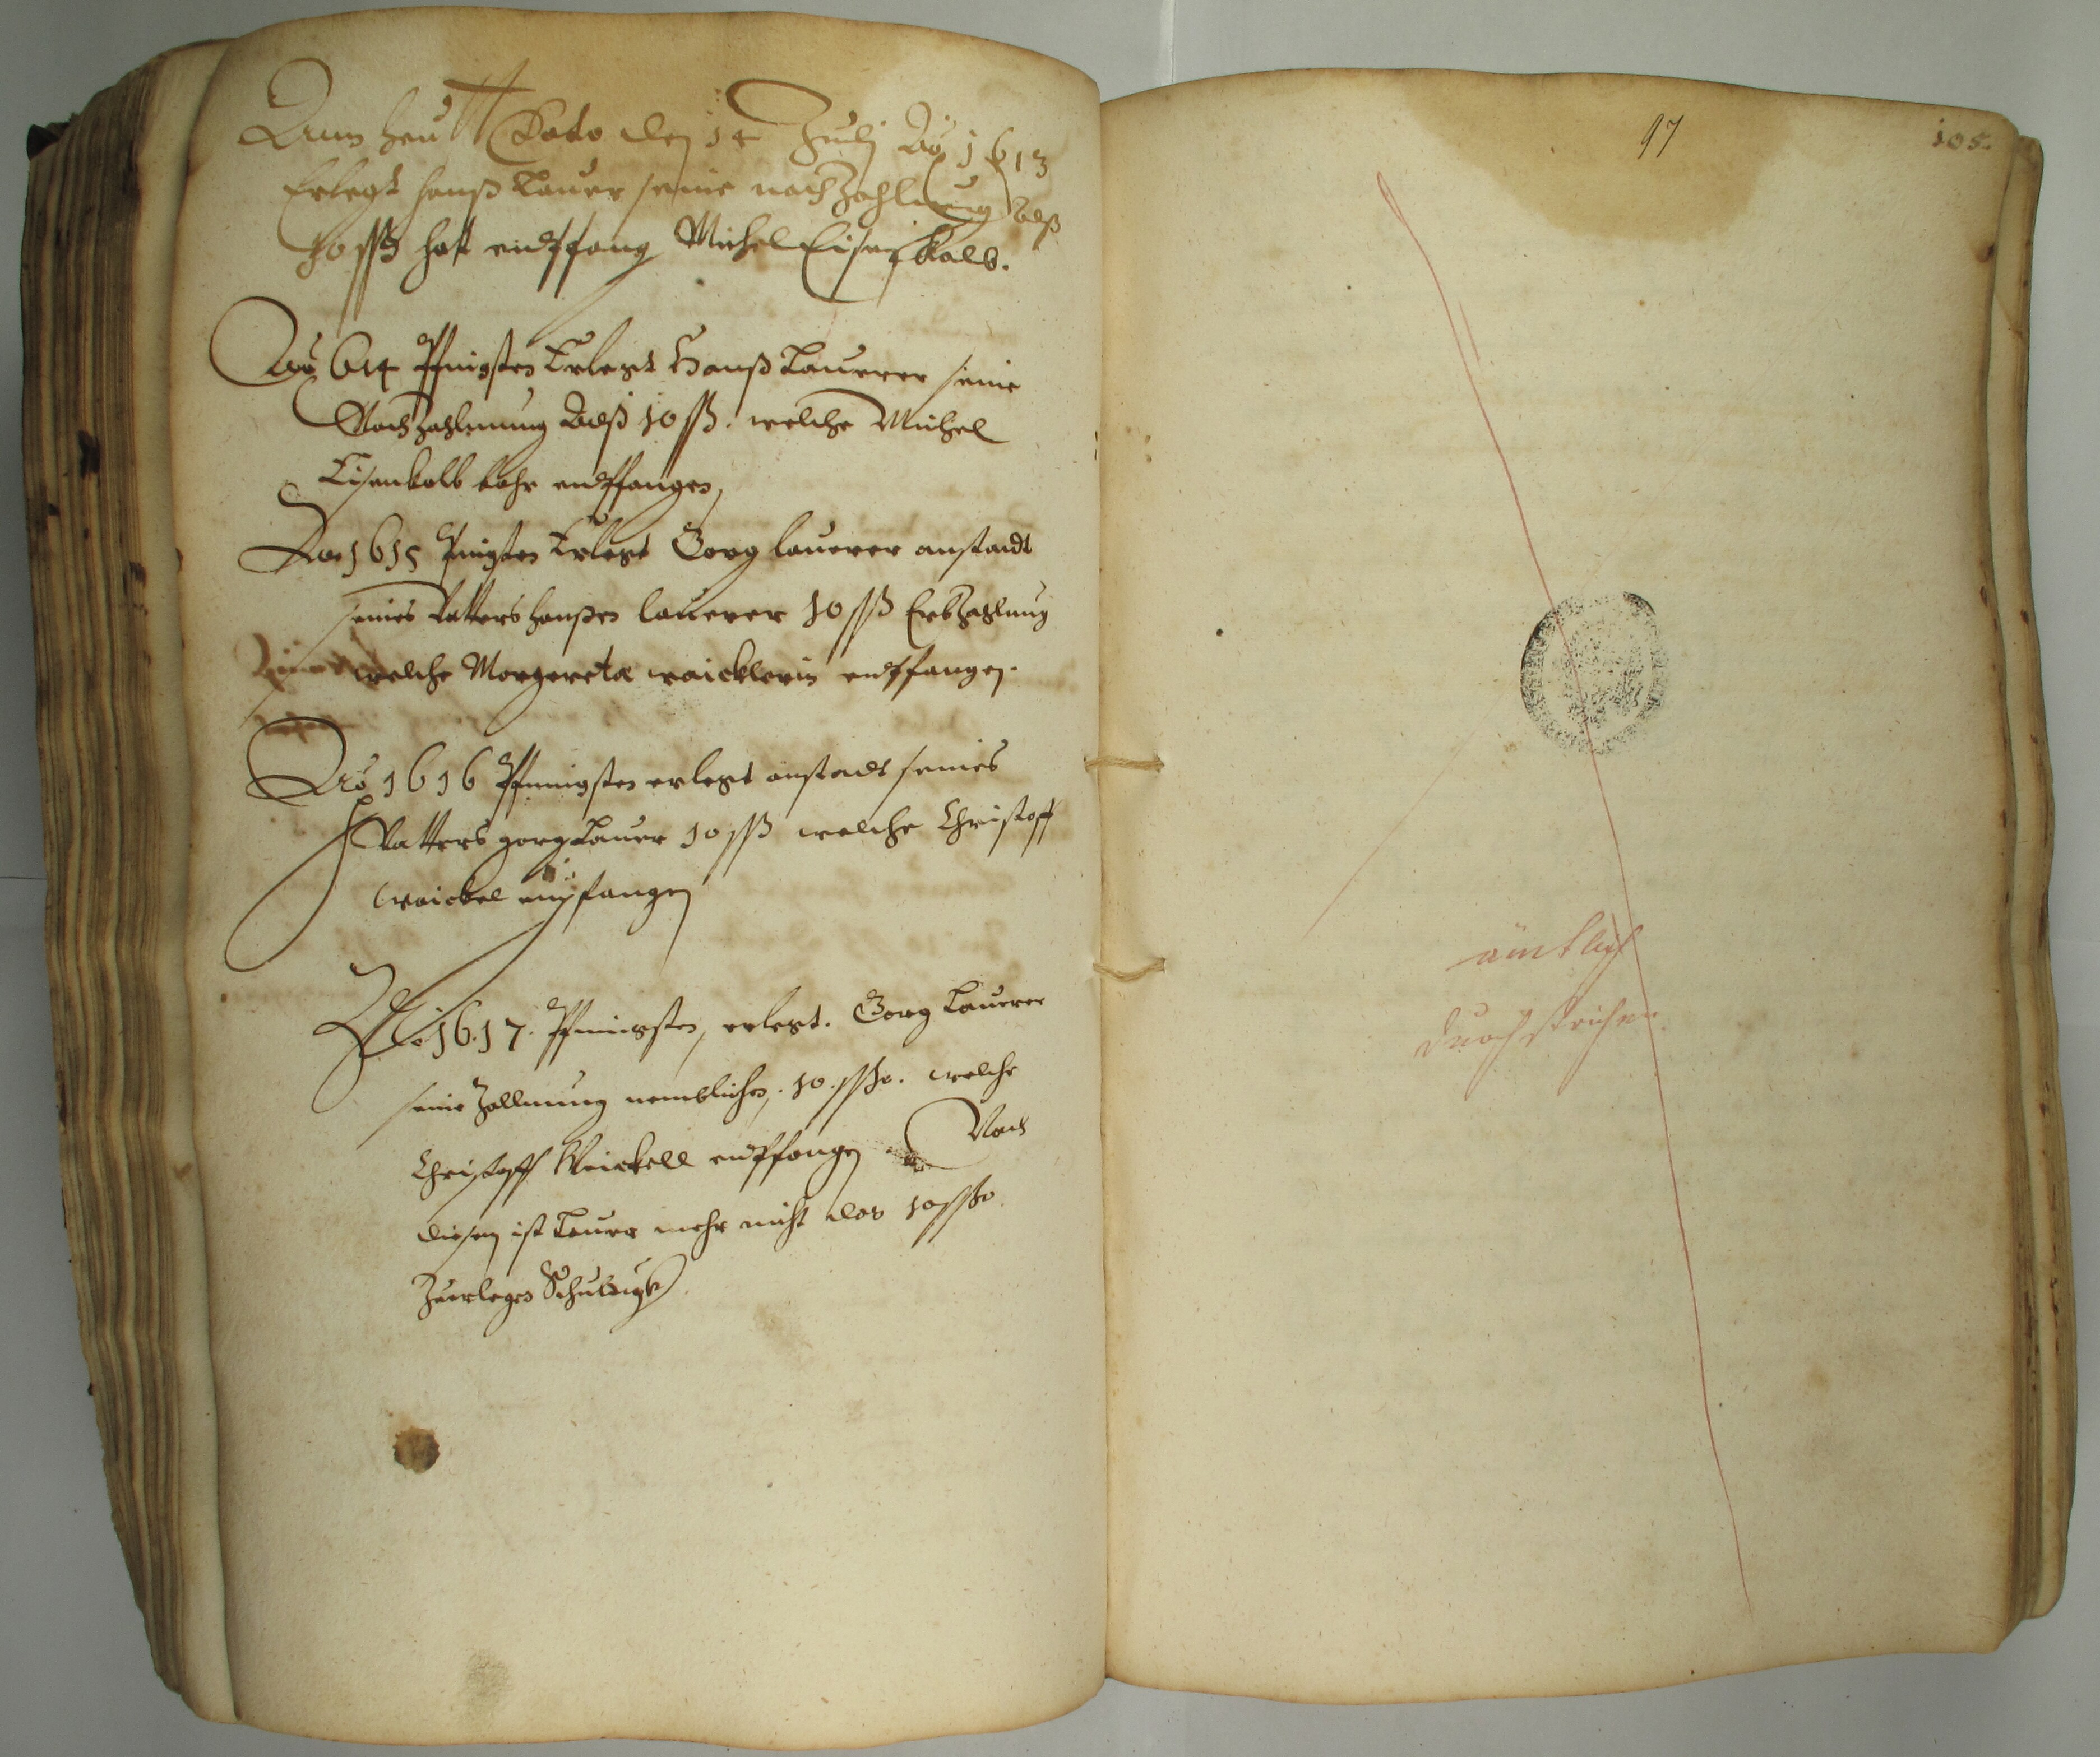 Ann heutt Dato den 14 Julij Ao 1613
Erlegt hanß Laurer seine nachzahlung
10 ßß hatt endtpfang Michel Eisenkalb.
Ao 614 Pfingsten Erlegt Hanß Laurer seine
Nachzahlunng 10 ßß. welche Michel
Eisenkalb bahr endtpfangen,
Ao 1615 Pfingsten Erlegt Georg laurer anstadt
seines Vatters hanßen laurer 10 ßß Erbzahlung
welche Morgereta waicklerin endtpfangen.
Ao 1616 Pfinngsten erlegt anstadt seines
Vatters gorg Laurer 10 ßß welche Christoff
waickel empfangen
Ao 1617. Pfinngsten, erlegt. Georg Laurer
seine Zallunng nemblichen, 10. ßß. welche
Christoff Weickell endtpfangen Nach
diesem ist Laurer mehr nicht das 10 ßß
Zuerlegen Schuldigk
97
105.
ämtlich
durchstrichen